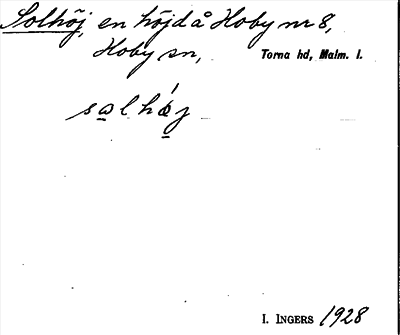 Solhöj, en höjd å Hoby nr 8,
Hoby sn, Torna hd, Malm. l.
salhǿj
I. INGERS 1928